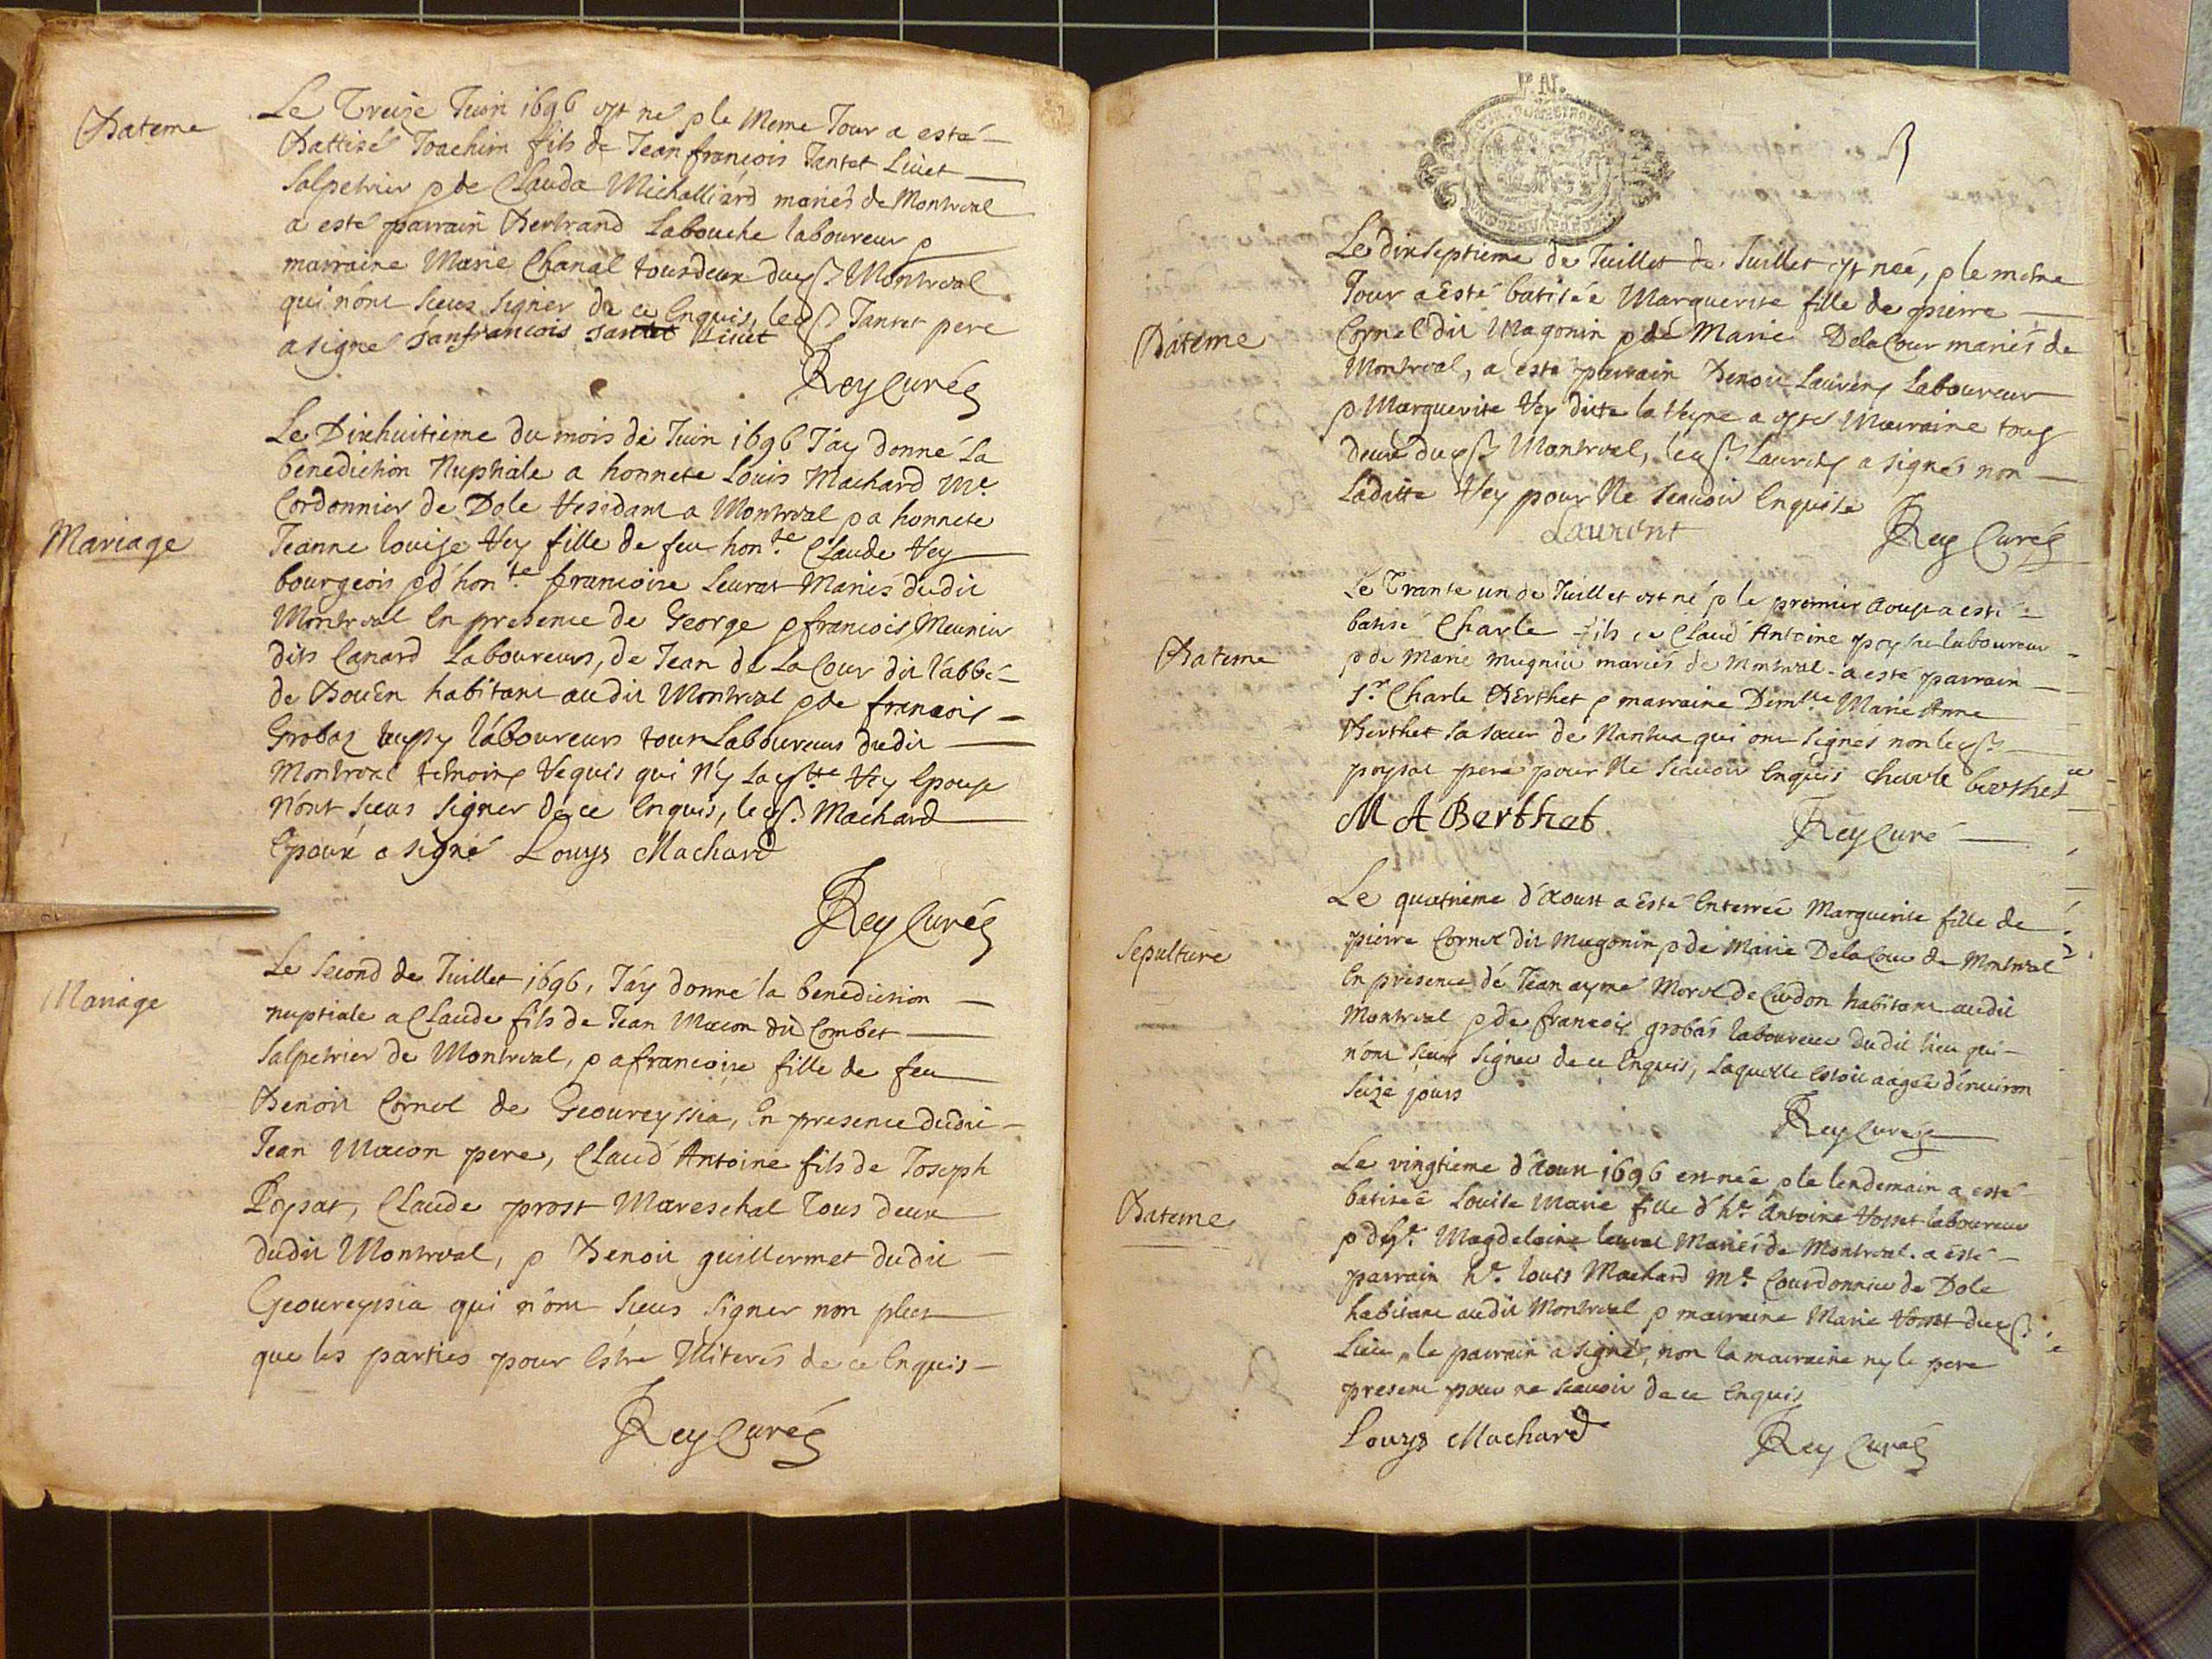 Bateme
Le Treize Juin 1696 est né & le meme Jour a esté
Battisé Joachim fils de Jean françois Tantet Livet
salpetrier & de Clauda Michalliard mariés de Montreal
a esté parrain Bertrand Labouche laboureur &
marraine Marie Chanal tous deux du Montreal
qui n'ont sceus signer de ce Enquis, le Tantet pere
a signé Janfrancois Livet
Rey Curé
Mariage
Le Dixhuitieme du mois de Juin 1696 J'ay donné La
benediction Nuptiale a honnete Louis Machard Me.
Cordonnier de Dole Residant a Montreal & a honnete
Jeanne louise Vey fille de feu hon.te Claude Vey
bourgeois & d'hon.te francoise Leurat Mariés dudit
Montreal En presence de George & francois Meunier
dits Canard Laboureurs, de Jean de La Cour dit l'abbé
de Bouën habitant audit Montreal & de francois
Grobas aussy laboureurs tour Laboureurs dudit
Montreal temoins Requis qui N'y La Vey Epouse
N'ont sceus signer de ce Enquis, le Machard
Epoux a signé Louys Machard
Rey Curé
Mariage
Le second de Juillet 1696, J'ay donné la benediction
nuptiale a Claude fils de Jean Macon dit Combet
salpetrier de Montreal, & a francoise fille de feu
Benoit Cornet de Geoureyssia, En presence dudit
Jean Macon pere, Claud' Antoine fils de Joseph
Poysat, Claude prost Mareschal Tous deux
dudit Montreal, & Benoit guillermet dudit
Geoureyssia qui n'ont sceus signer non plus
que les parties pour Estre Illiterés de ce Enquis
Rey Curé
Bateme
Le dixseptieme de Juillet de Juillet est née, & le meme
Jour a esté batisée Marguerite fille de pierre
Cornet dit Magonin & de Marie Dela Cour mariés de
Montreal, a esté parrain Benoit Laurens Laboureur
& Marguerite Vey ditte la Veyne a esté Marraine tous
deux du Montreal, le Laurens a signés non
Laditte Vey pour Ne sçauoir Enquise
Laurent
Rey Curé
Bateme
Le Trante un de Juillet est né & le premier Aoust a esté
batisé Charle fils de Claud' Antoine poysat laboureur
& de Marie mugnier mariés de Montreal a esté parrain
Sr. Charle Berthet & marraine Marie Anne
Berthet sa soeur de Nantua qui ont signés non le
poysat pere pour Ne sçauoir Enquis Charle berthet
M A Berthet
Rey Curé
Sepulture
Le quatrieme d'Aoust a esté Enterrée Marguerite fille de
pierre Cornet dit Magonin & de Marie Dela Cour de Montreal
En presence de Jean aymé Morel de Cerdon habitant audit
Montreal & de francois grobas laboureur dudit lieu qui
n'ont sceus signer de ce Enquis, Laquelle Estoit aagée d'enuiron
seize jours
Rey Curé
Bateme
Le vingtieme d'Aoust 1696 est née & le lendemain a esté
batisée Louise Marie fille d'he. Antoine Vosset laboureur
& d'he. Magdelaine leurat Mariés de Montreal. a esté
parrain he. louis Machard Me. Courdonnier de Dole
habitant audit Montreal & marraine Marie Vosset
Lieu, le parrain a signé, non la marraine ny le pere
present pour ne sçauoir de ce Enquis
Louys Machard
Rey Curé